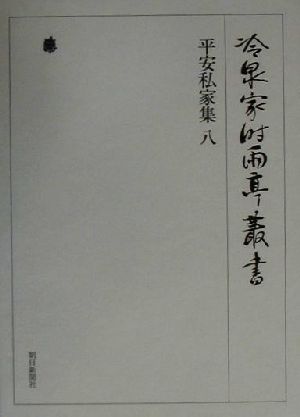 冷泉家時雨亭叢書
平安私家集 八
朝日新聞社